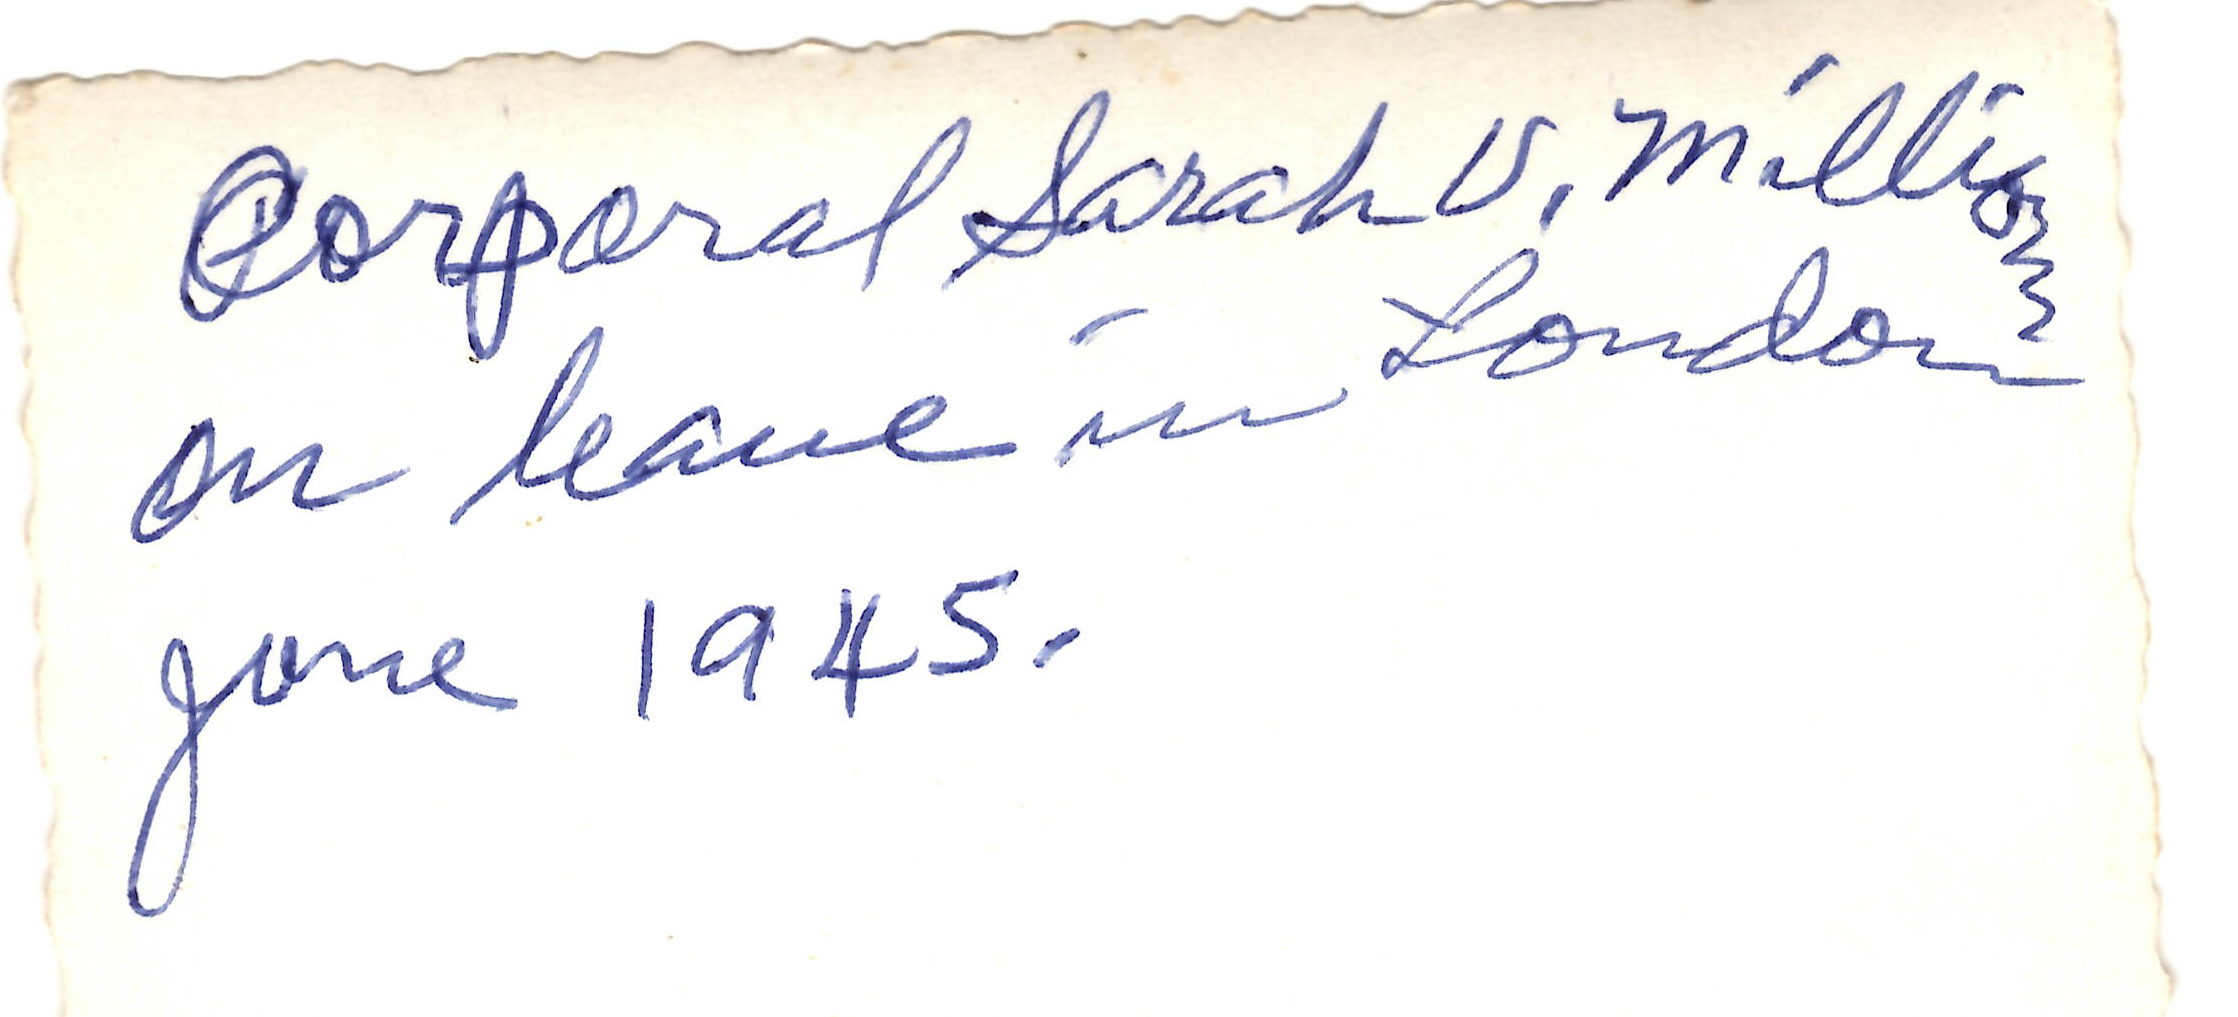 Corporal Sarah V. Million
on leave in London
June 1945.